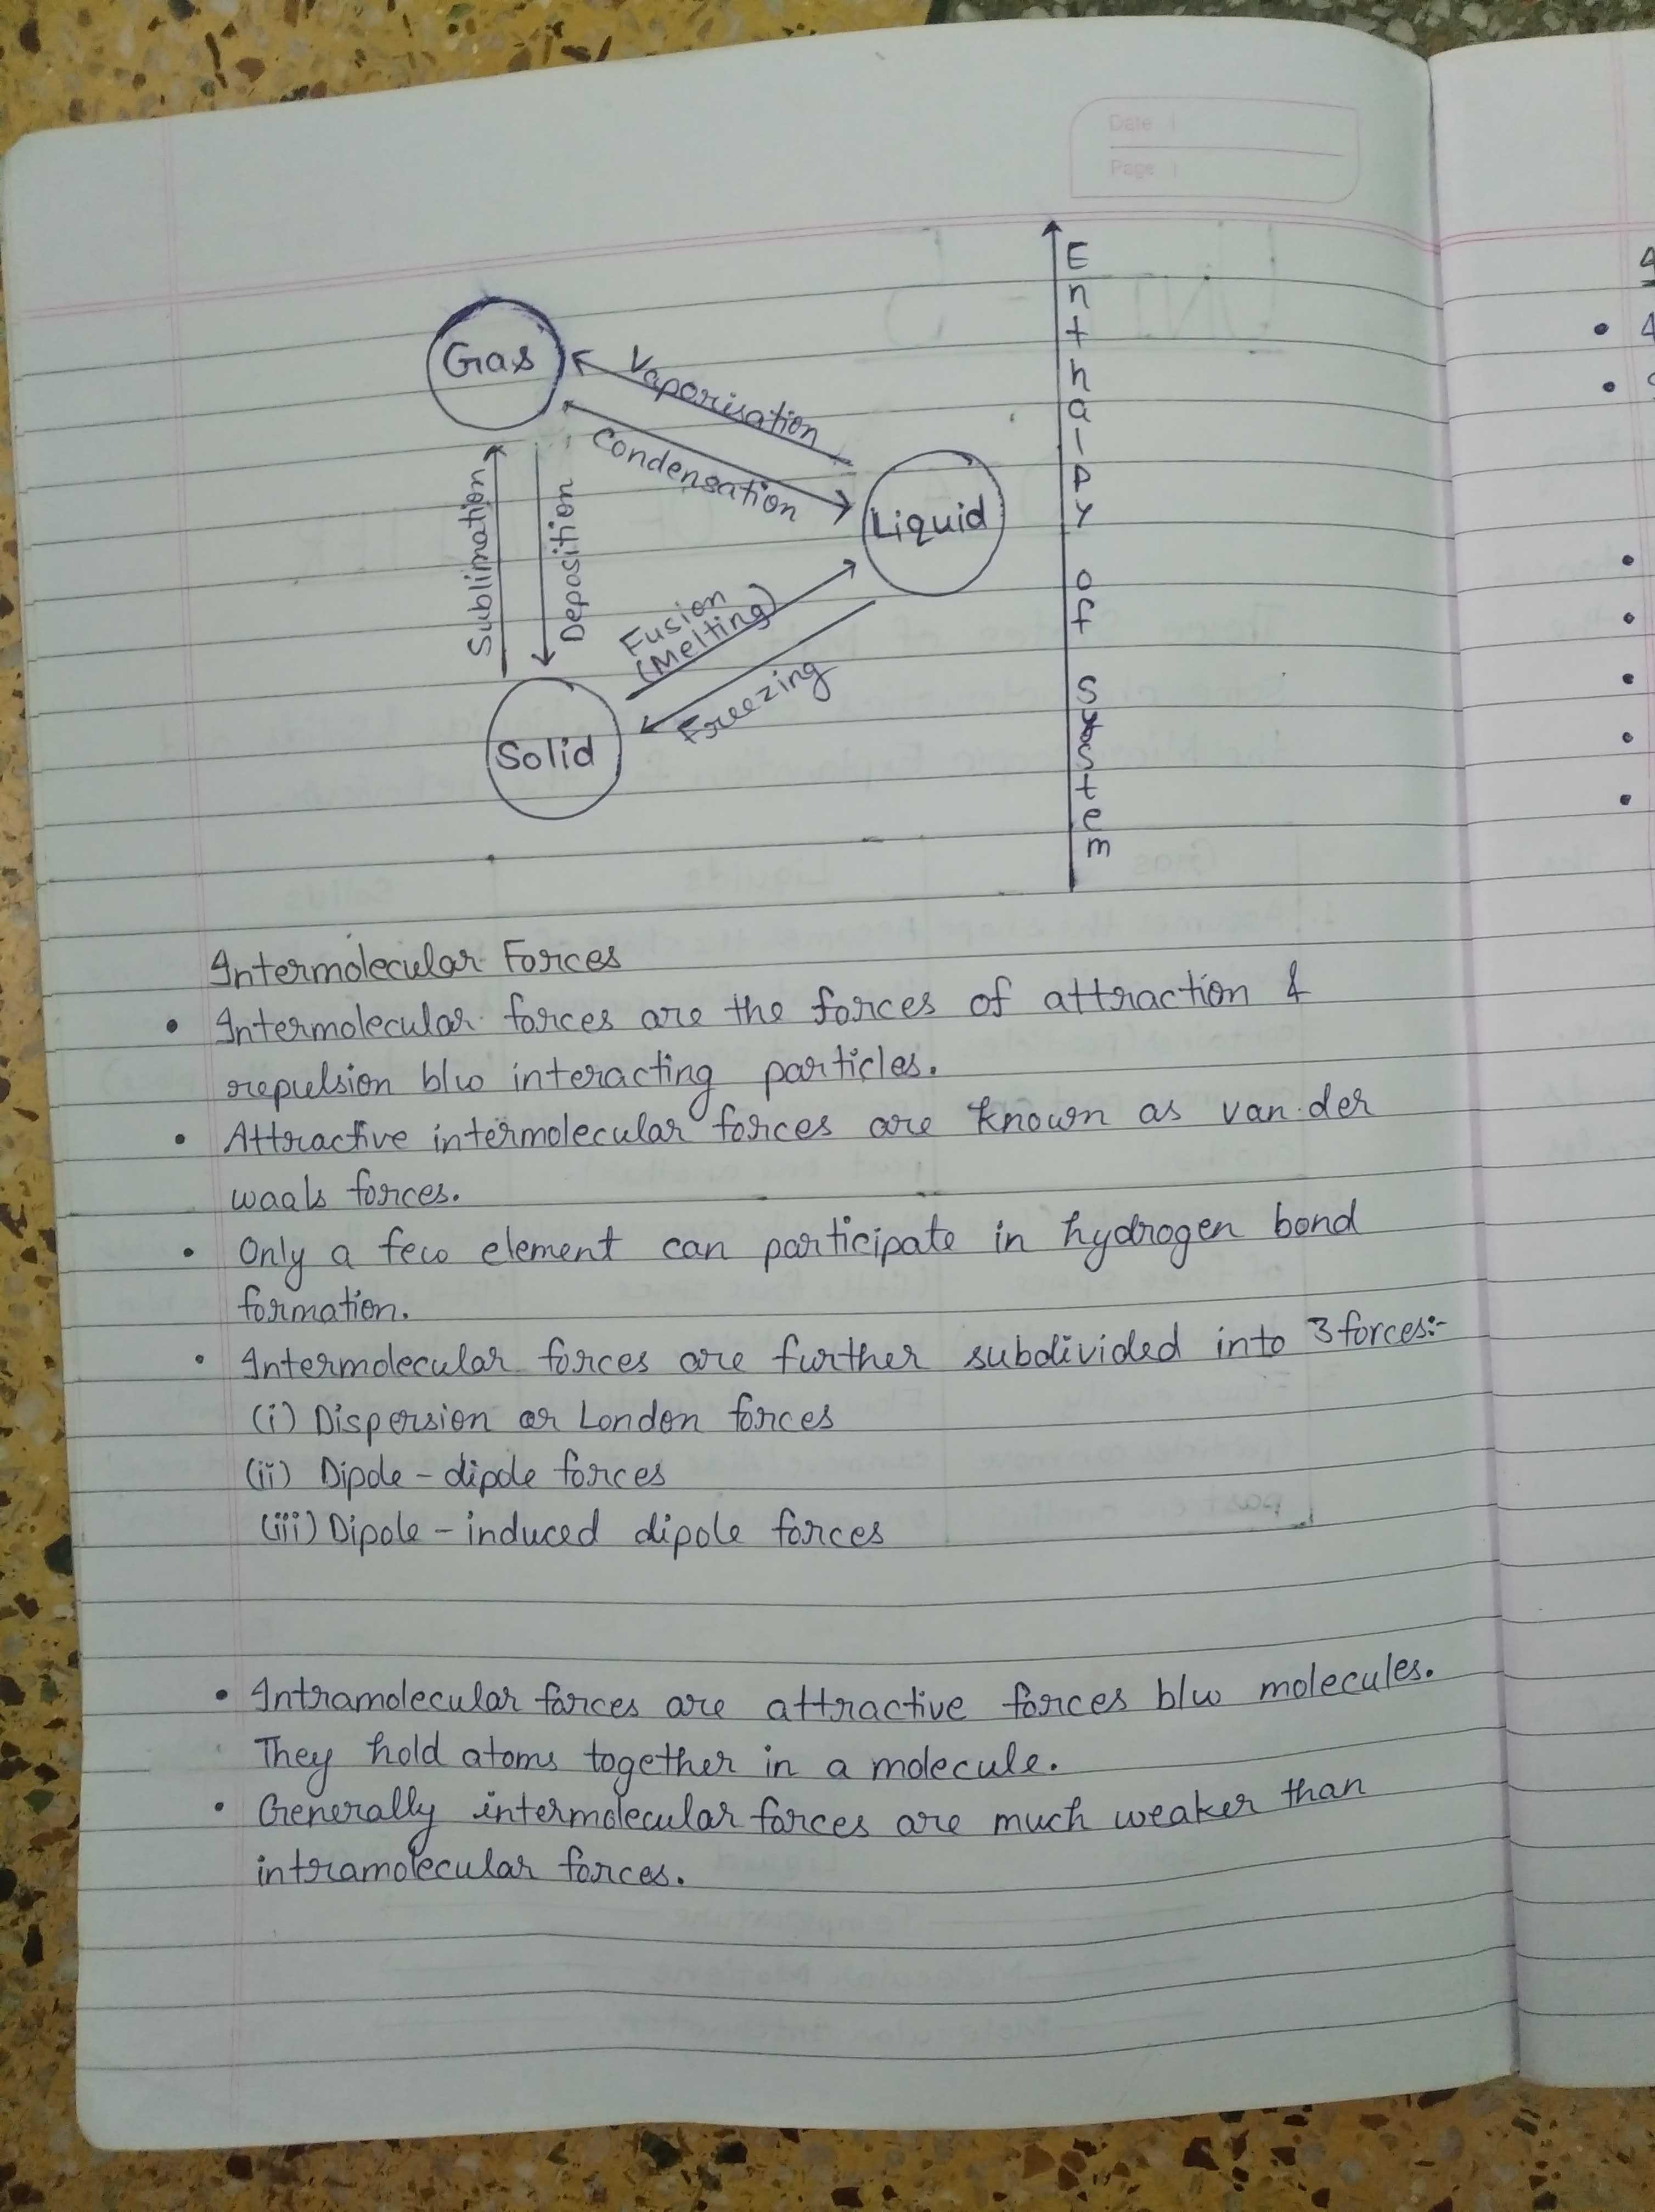 Date
Page
Gas
Vaporisation
Condensation
Liquid
Sublimation
Deposition
Fusion
(Melting)
Freezing
Solid
Enthalpy of System
Intermolecular Forces
• Intermolecular forces are the forces of attraction &
repulsion b/w interacting particles.
• Attractive intermolecular forces are known as van der
waals forces.
• Only a few element can participate in hydrogen bond
formation.
• Intermolecular forces are further subdivided into 3 forces:-
(i) Dispersion or London forces
(ii) Dipole - dipole forces
(iii) Dipole - induced dipole forces
• Intramolecular forces are attractive forces b/w molecules.
They hold atoms together in a molecule.
• Generally intermolecular forces are much weaker than
intramolecular forces.